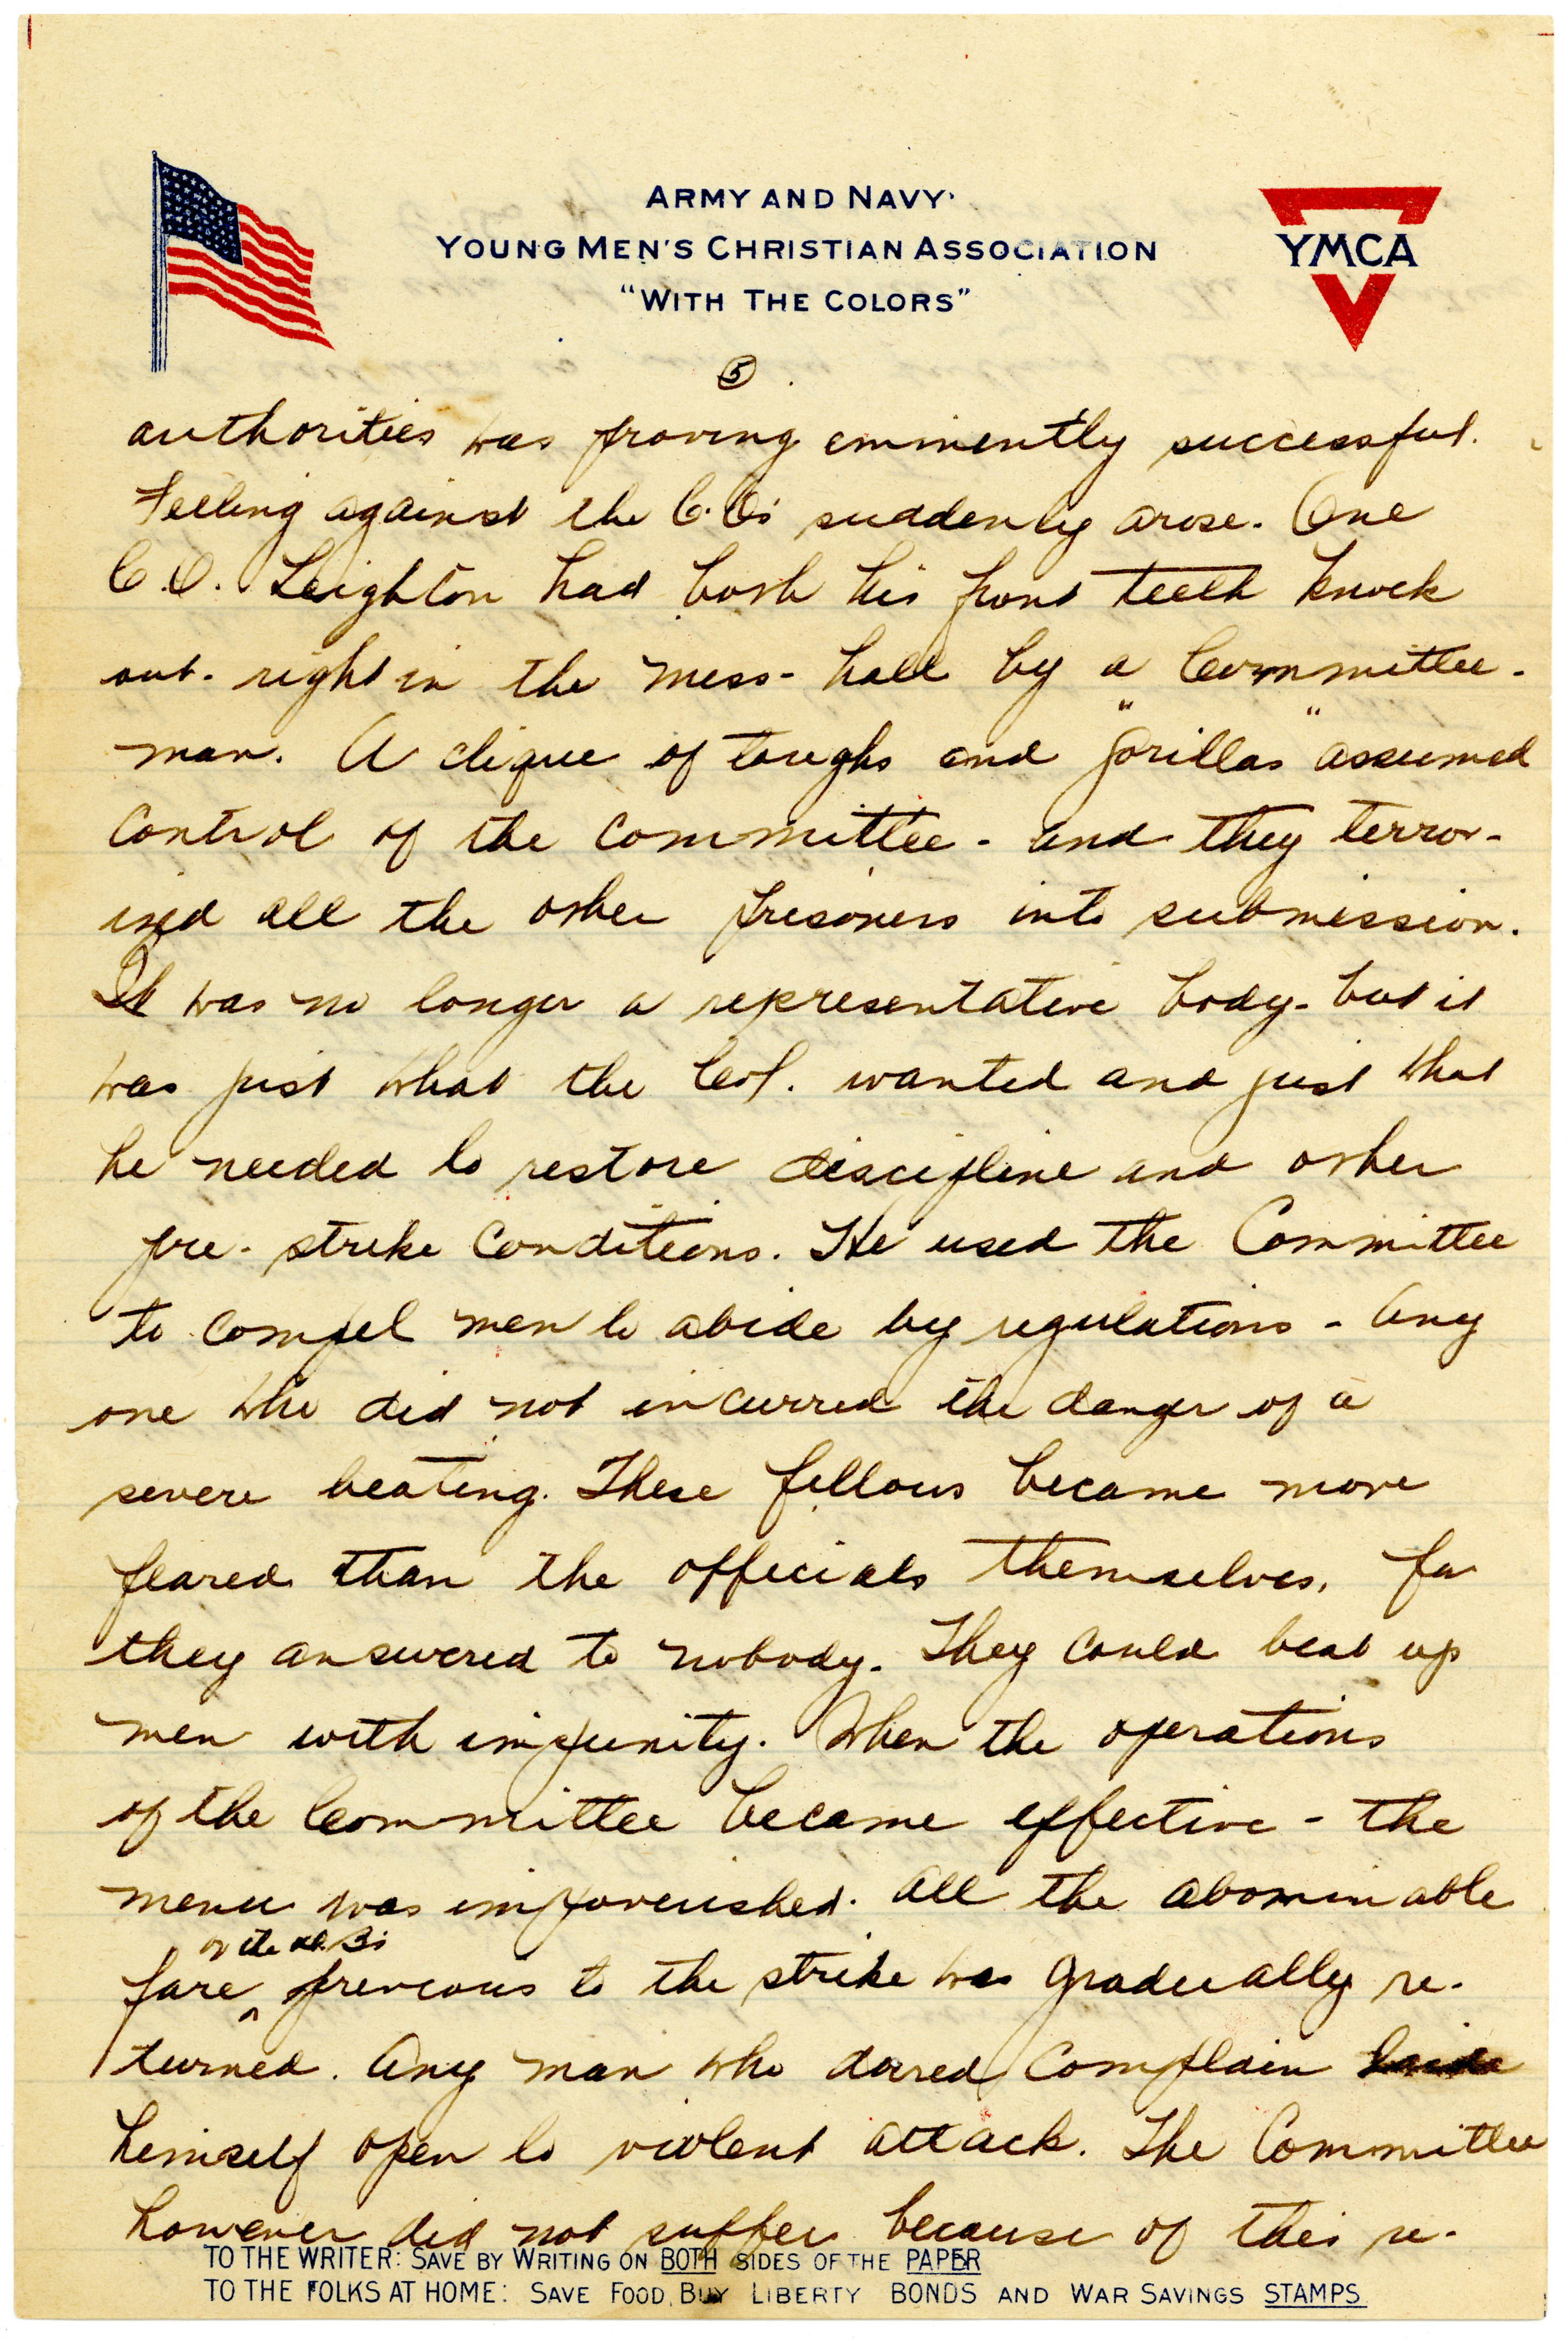 ARMY AND NAVY
YOUNG MEN'S CHRISTIAN ASSOCIATION
"WITH THE COLORS"
YMCA
5
authorities was proving eminently successful.
Feeling against the C.O's suddenly arose. One
C.O. Leighton had both his front teeth knock
out - right in the mess-hall by a Committee-
man. A clique of toughs and "gorillas" assumed
control of the committee - and they terror-
ized all the other prisoners into submission.
It was no longer a representative body - but it
was just what the Col. wanted and just what
he needed to restore discipline and other
pre-strike conditions. He used the Committee
to compel men to abide by regulations - Any
one who did not incurred the danger of a
severe beating. These fellows became more
feared than the officials themselves, for
they answered to nobody. They could beat up
men with impunity. When the operations
of the Committee became effective - the
menu was impoverished. All the abominable
of the D.B's
fare previous to the strike was gradually re-
turned. Any man who dared complain
himself open to violent attack. The Committee
however did not suffer because of this re-
TO THE WRITER: SAVE BY WRITING ON BOTH SIDES OF THE PAPER
TO THE FOLKS AT HOME: SAVE FOOD, BUY LIBERTY BONDS AND WAR SAVINGS STAMPS